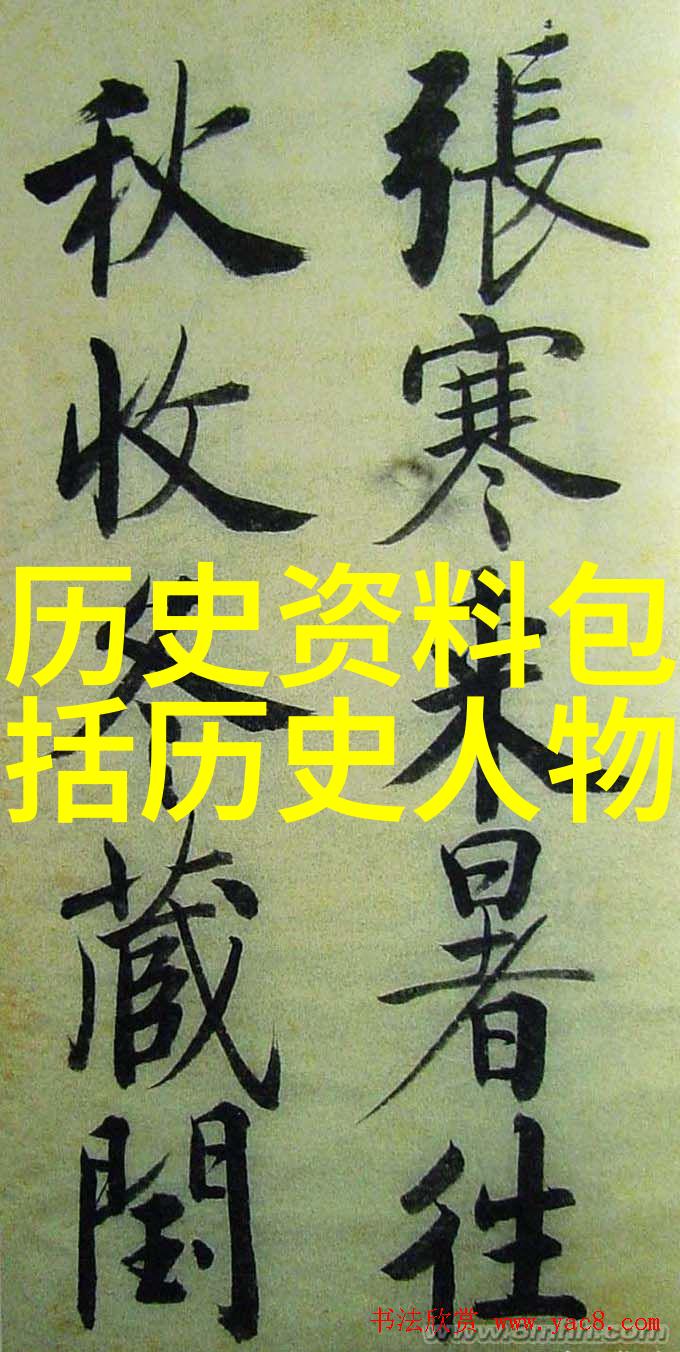 張寒来暑往
秋收冬蔵閏
历史资料包
括历史人物
书法欣赏 www.yac8.com